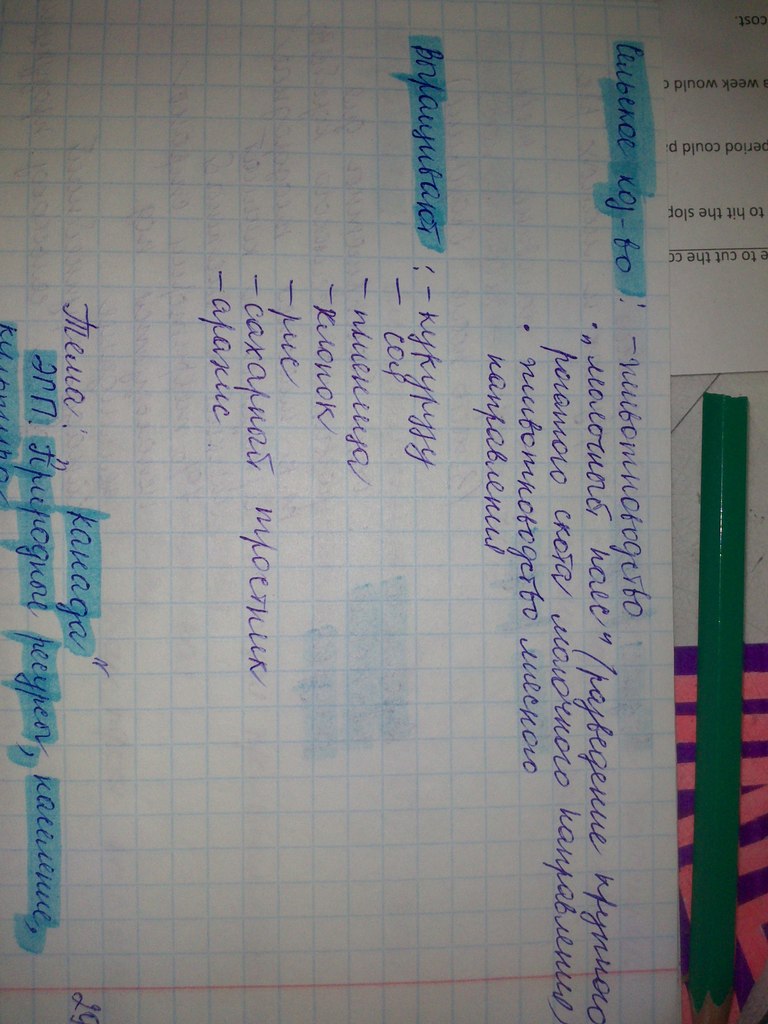 Сельское хоз-во: - животноводство
• "молочный пояс" (разведение крупного
рогатого скота молочного направления)
• животноводство мясного
направления
Выращивают: - кукурузу
- соя
- пшеница
- хлопок
- рис
- сахарный тростник
- арахис
Тема: "Канада"
ЭГП. Природные ресурсы, население,
культура
cost.
a week would c
period could pa
to hit the slop
e to cut the co